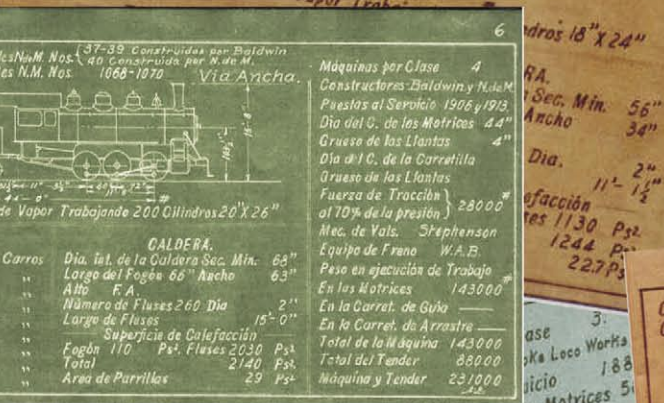 6
37-39 Construidas por Baldwin
Nos. 40 Construida por N. de M.
N.M. Nos. 1068-1070 Vía Ancha.
de Vapor Trabajando 200 Cilindros 20"X26"
CALDERA.
Carros Dia. int. de la Caldera Sec. Min. 68"
" Largo del Fogón 66" Ancho 63"
" Alto F.A.
" Número de Fluses 260 Dia 2"
" Largo de Fluses 15'-0"
" Superficie de Calefacción
" Fogón 110 Ps². Fluses 2030 Ps²
" Total 2140 Ps²
" Area de Parrillas 29 Ps²
Máquinas por Clase 4
Constructores Baldwin y N.de M.
Puestas al Servicio 1906 y 1913
Dia del C. de las Motrices 44"
Grueso de las Llantas 4"
Dia del C. de la Carretilla
Grueso de las Llantas
Fuerza de Tracción
al 70% de la presión } 28000#
Mec. de Vals. Stephenson
Equipo de Freno W.A.B.
Peso en ejecución de Trabajo
En las Motrices 143000#
En la Carret. de Guía
En la Carret. de Arrastre
Total de la Máquina 143000
Total del Tender 88000
Máquina y Tender 231000
18"X24"
Sec. Min. 56"
Ancho 34"
Dia. 2"
11'-1½"
1130 Ps²
1244
22.7 Ps
3.
Loco Works
188